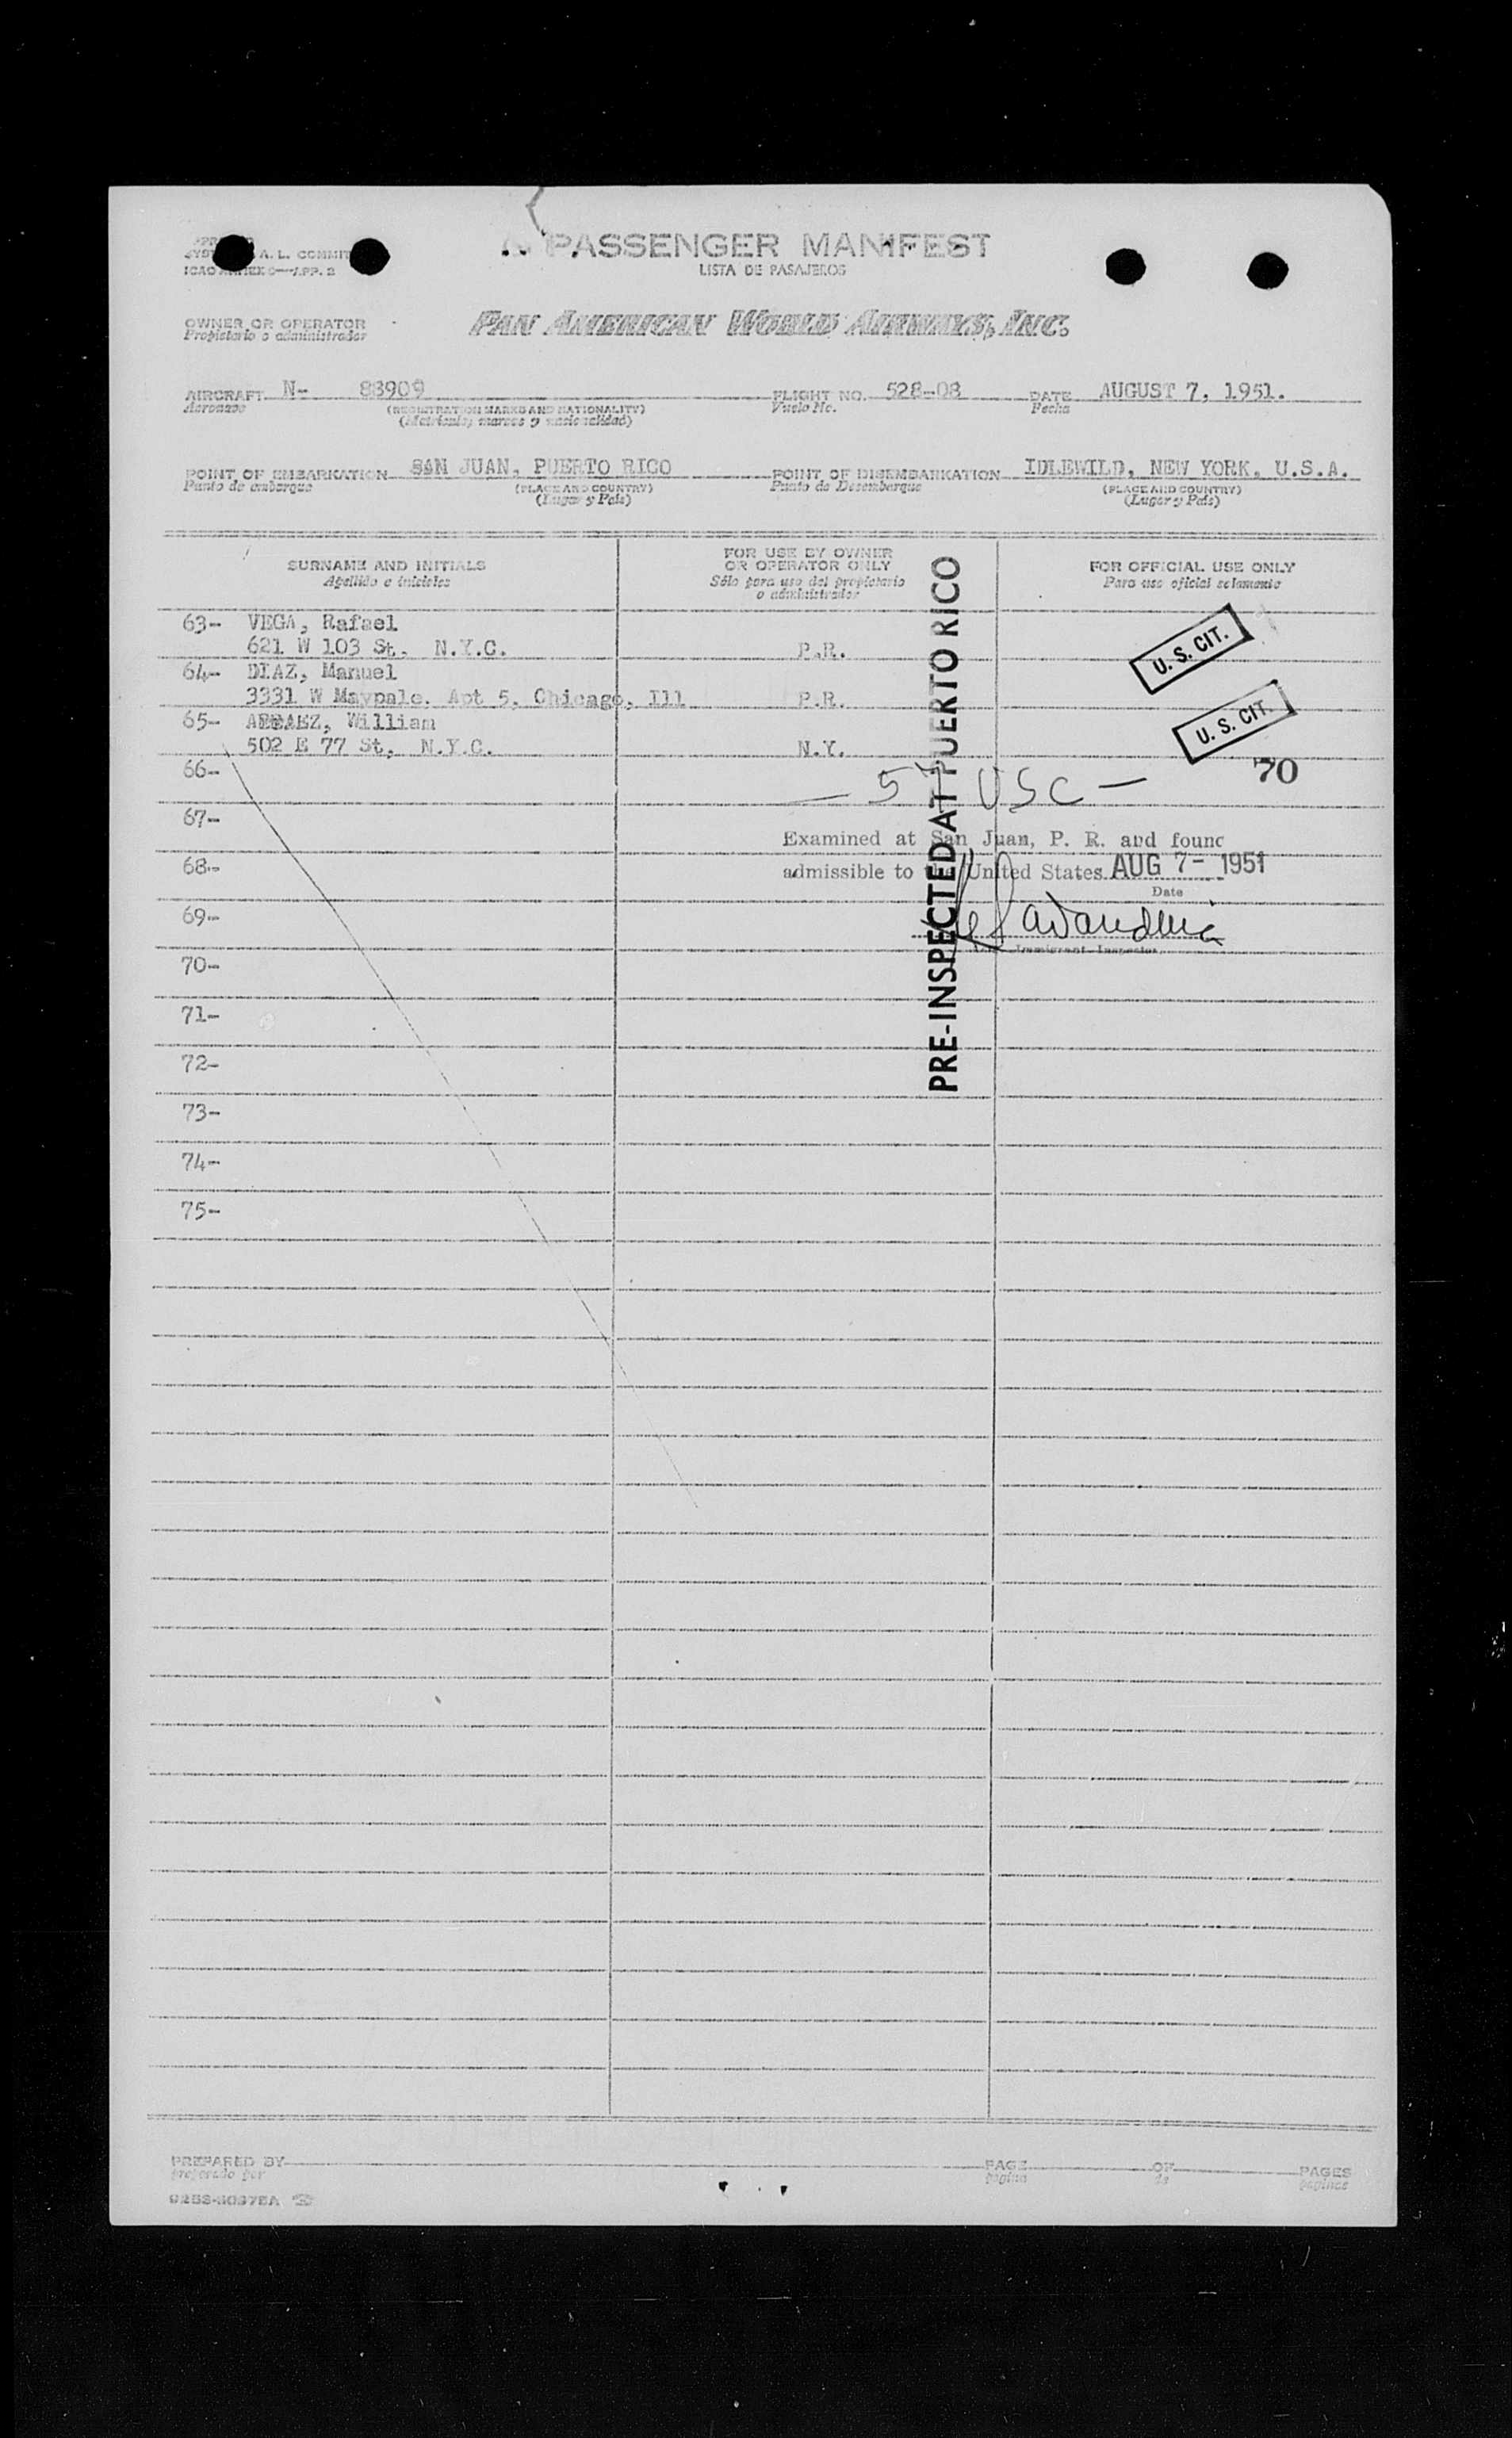 A. L. COMMIT
PASSENGER MANIFEST
LISTA DE PASAJEROS
OWNER OR OPERATOR
Propietario o administrador
PAN AMERICAN WORLD AIRWAYS, INC.
AIRCRAFT N- 88909 FLIGHT NO. 528-08 DATE AUGUST 7, 1951.
Aeronave (REGISTRATION MARKS AND NATIONALITY) Vuelo No. Fecha
(Matrícula, marcas y nacionalidad)
POINT OF EMBARKATION SAN JUAN, PUERTO RICO POINT OF DISEMBARKATION IDLEWILD, NEW YORK, U.S.A.
Punto de embarque (PLACE AND COUNTRY) Punto de Desembarque (PLACE AND COUNTRY)
(Lugar y País) (Lugar y País)
SURNAME AND INITIALS
Apellido e iniciales
FOR USE BY OWNER
OR OPERATOR ONLY
Sólo para uso del propietario
o administrador
FOR OFFICIAL USE ONLY
Para uso oficial solamente
63- VEGA, Rafael
621 W 103 St. N.Y.C. P.R.
U. S. CIT.
64- DIAZ, Manuel
3331 W Maypale. Apt 5, Chicago, Ill P.R.
65- William
502 E 77 St, N.Y.C. N.Y.
U. S. CIT.
66-
70
— 57 USC —
67-
Examined at San Juan, P. R. and found
68-
admissible to the United States AUG 7- 1951
Date
69-
Immigrant Inspector
PRE-INSPECTED AT PUERTO RICO
70-
71-
72-
73-
74-
75-
PREPARED BY PAGE OF PAGES
preparado por página de páginas